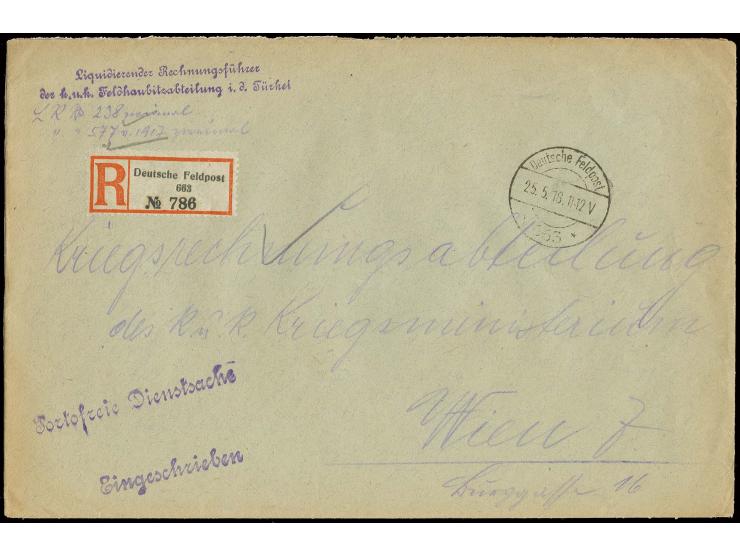 Liquidierender Rechnungsführer
der k.u.k. Feldhaubitzabteilung i. d. Türkei
238 zweimal
" " 577 v. 1917 zweimal
R
Deutsche Feldpost
663
№ 786
Deutsche Feldpost
25.5.18. 11-12 V
* 663 *
Kriegsrechnungsabteilung
des k. u. k. Kriegsministerium
Portofreie Dienstsache
Wien 7
Eingeschrieben
Burggasse 16